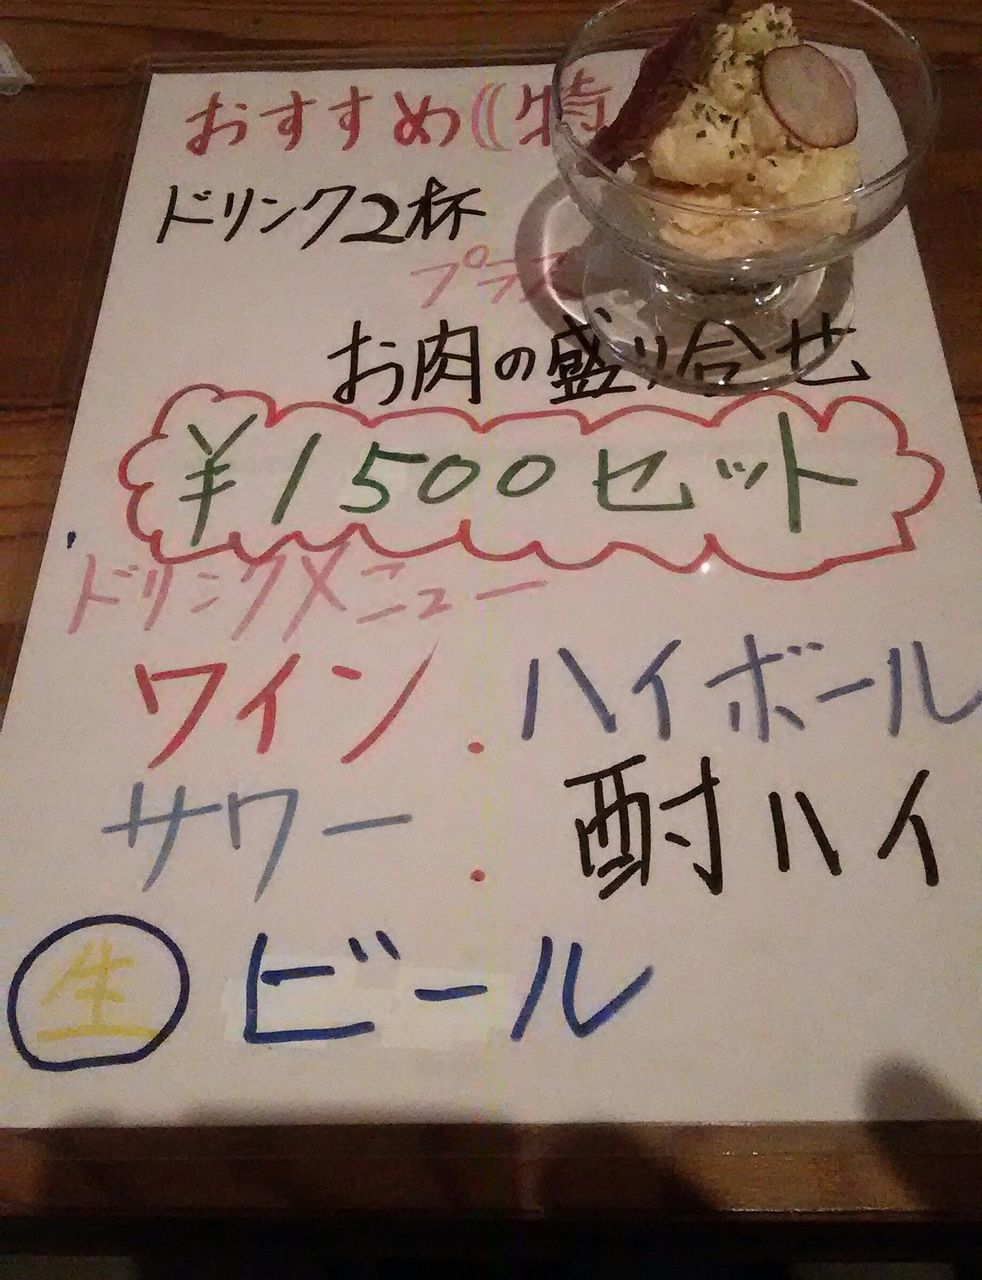 おすすめ《特
ドリンク2杯
プラス
お肉の盛り合せ
¥1500セット
ドリンクメニュー
ワイン.ハイボール
サワー.酎ハイ
生 ビール